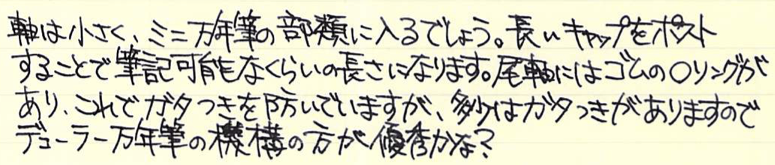 軸は小さく、ミニ万年筆の部類に入るでしょう。長いキャップをポスト
することで筆記可能なくらいの長さになります。尾軸にはゴムのOリングが
あり、これでガタつきを防いでいますが、多少はガタつきがありますので
デューラー万年筆の機構の方が優秀かな?